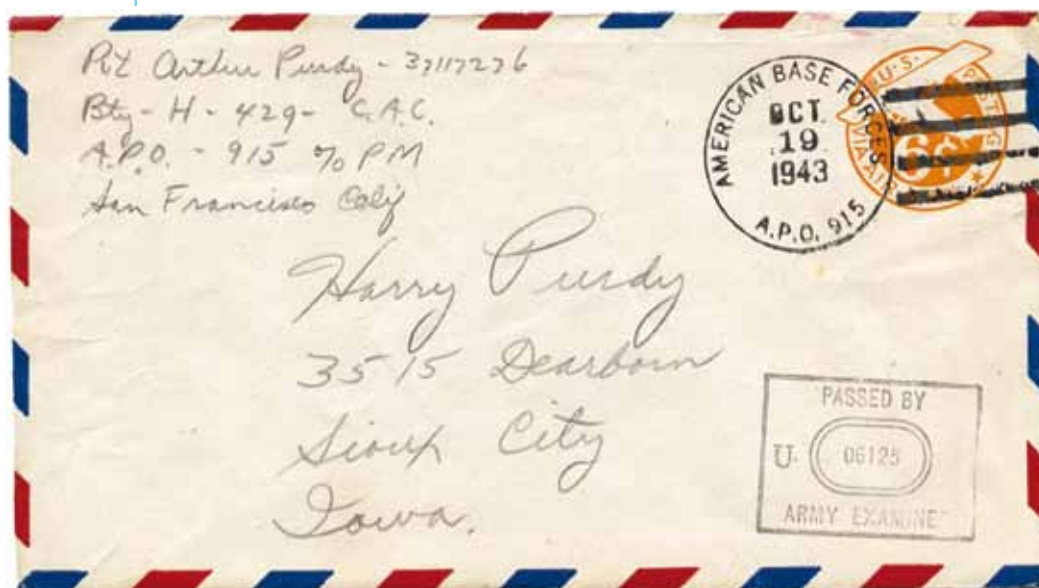 Pvt Arthur Purdy - 37117276
Bty - H - 429 - C.A.C.
A.P.O. - 915 % PM
San Francisco Calif
AMERICAN BASE FORCES
OCT
19
1943
A.P.O. 915
U.S. POSTAGE
VIA AIR
6¢
Harry Purdy
3515 Dearborn
Sioux City
Iowa.
PASSED BY
U. 06125
ARMY EXAMINE